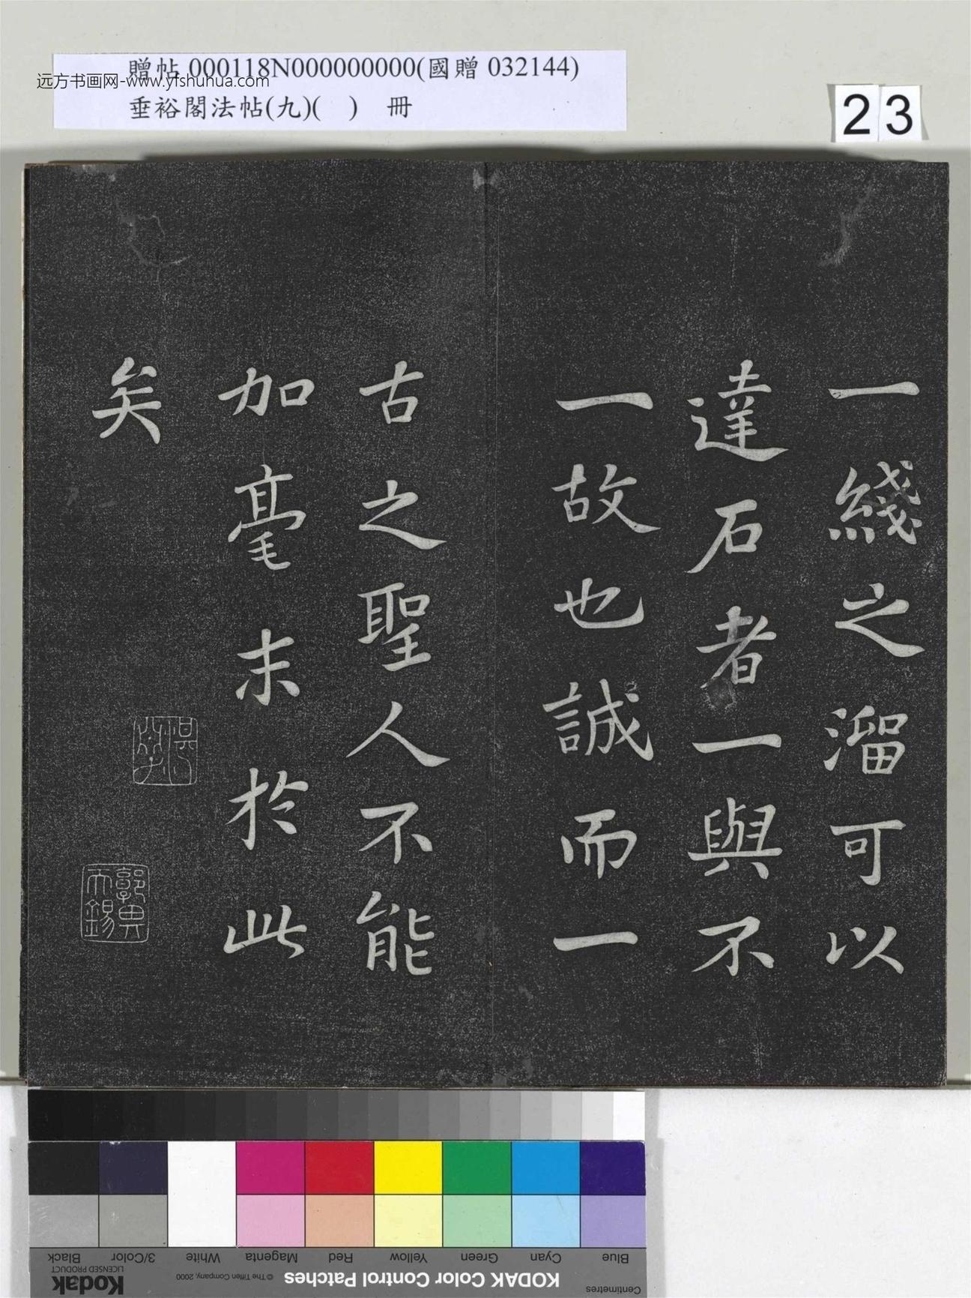 贈帖 000118N000000000(國贈 032144)
远方书画网-www.yfshuhua.com
垂裕閣法帖(九)( ) 冊
23
一綫之溜可以
達石者一與不
一故也誠而一
古之聖人不能
加毫末於此
矣
Blue
Cyan
Green
Yellow
Red
Magenta
White
3/Color
Black
Centimetres
KODAK Color Control Patches
© The Tiffen Company, 2000
Kodak
LICENSED PRODUCT